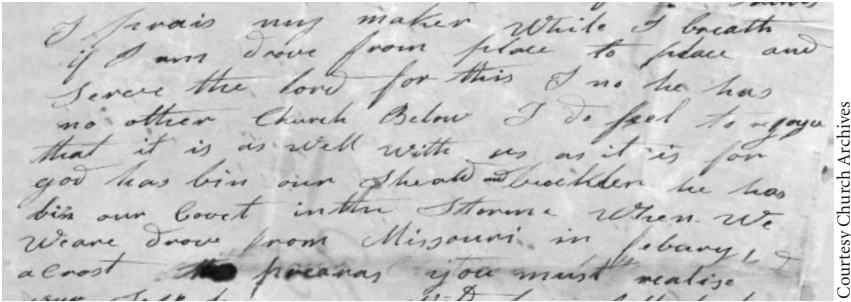 I prais my maker While I breath
if I am drove from place to place and
Serve the lord for this I no he has
no other Church Below I do feel to rejoyce
that it is as Well With us as it is for
god has bin our Sheald and buckler he has
bin our Covet in the Storme When We
Weare drove from Missouri in febuary
acrost the you must realise
Courtesy Church Archives